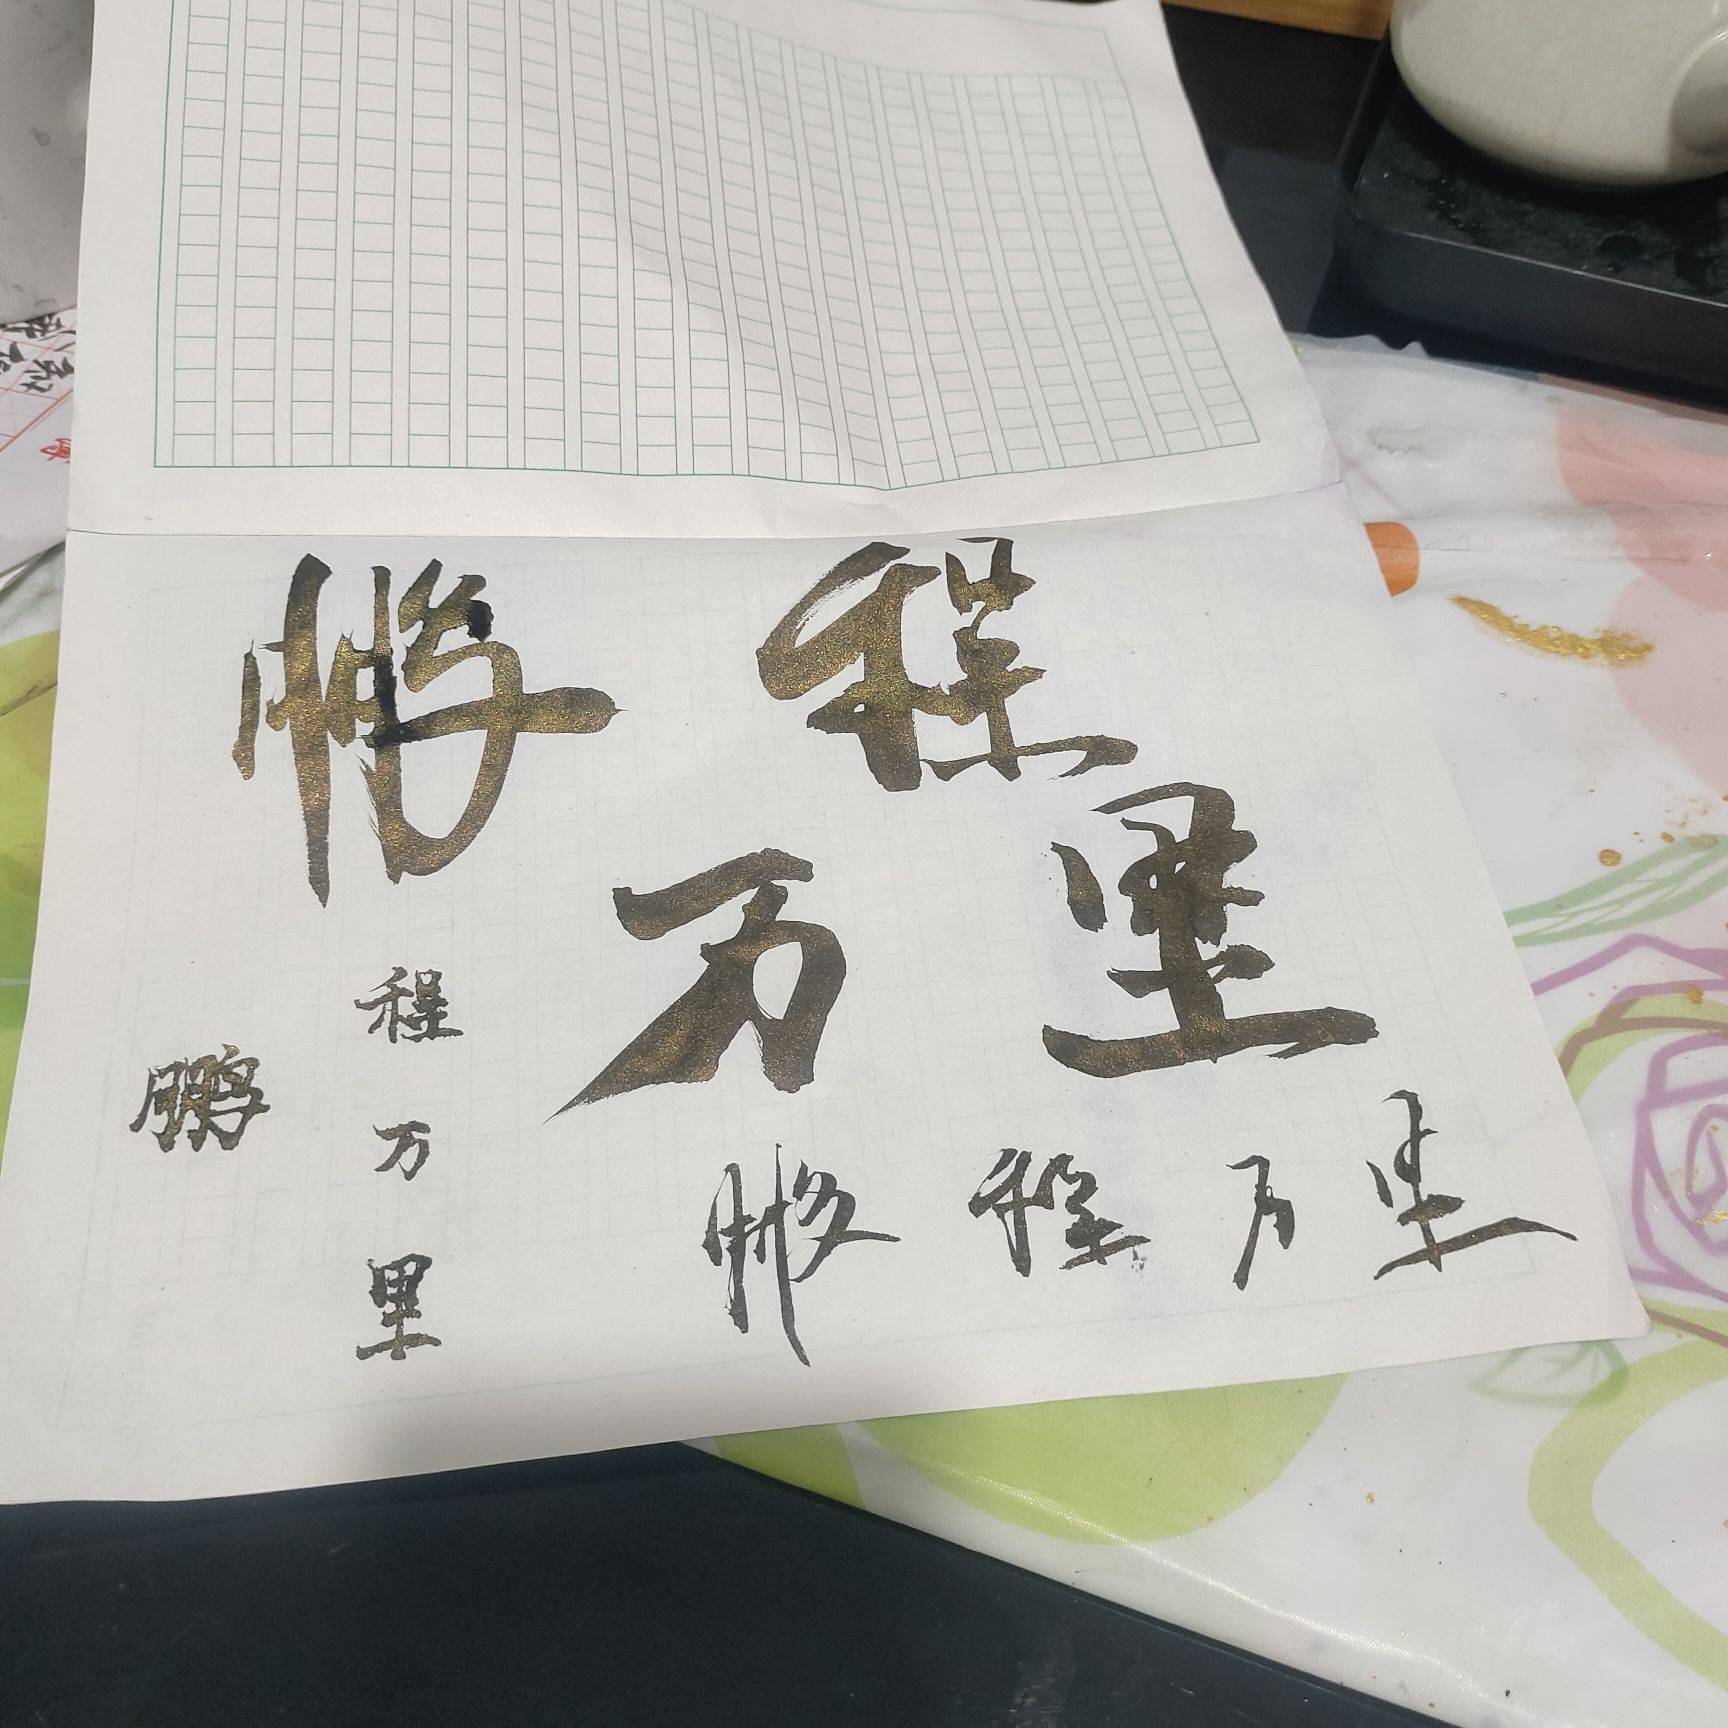 鹏程
万里
鹏
程
万
里
鹏程万里